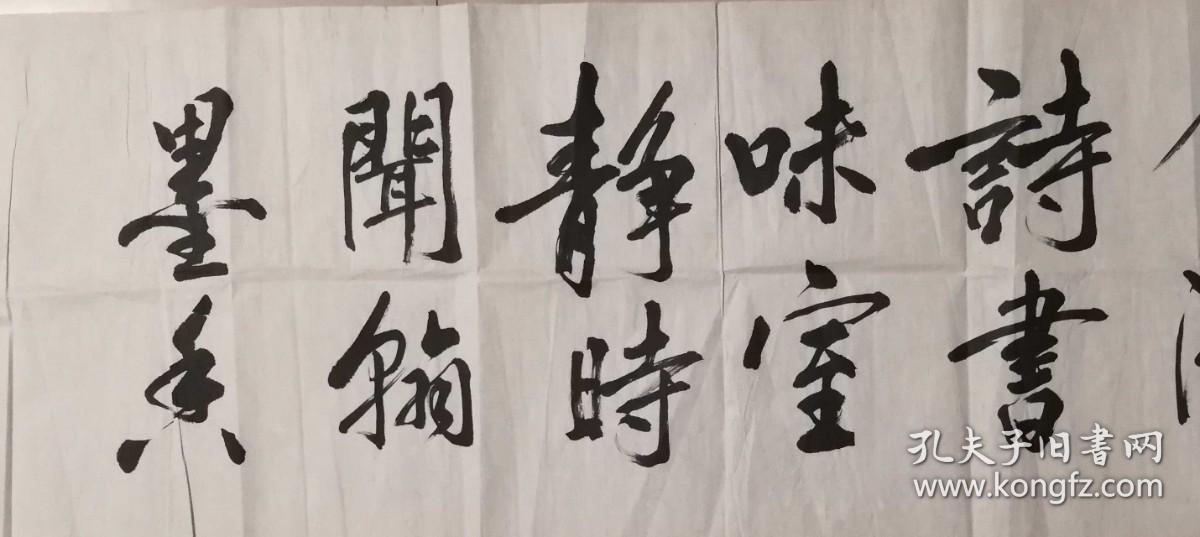 詩書
味室
静時
聞翰
墨香
孔夫子旧书网
www.kongfz.com